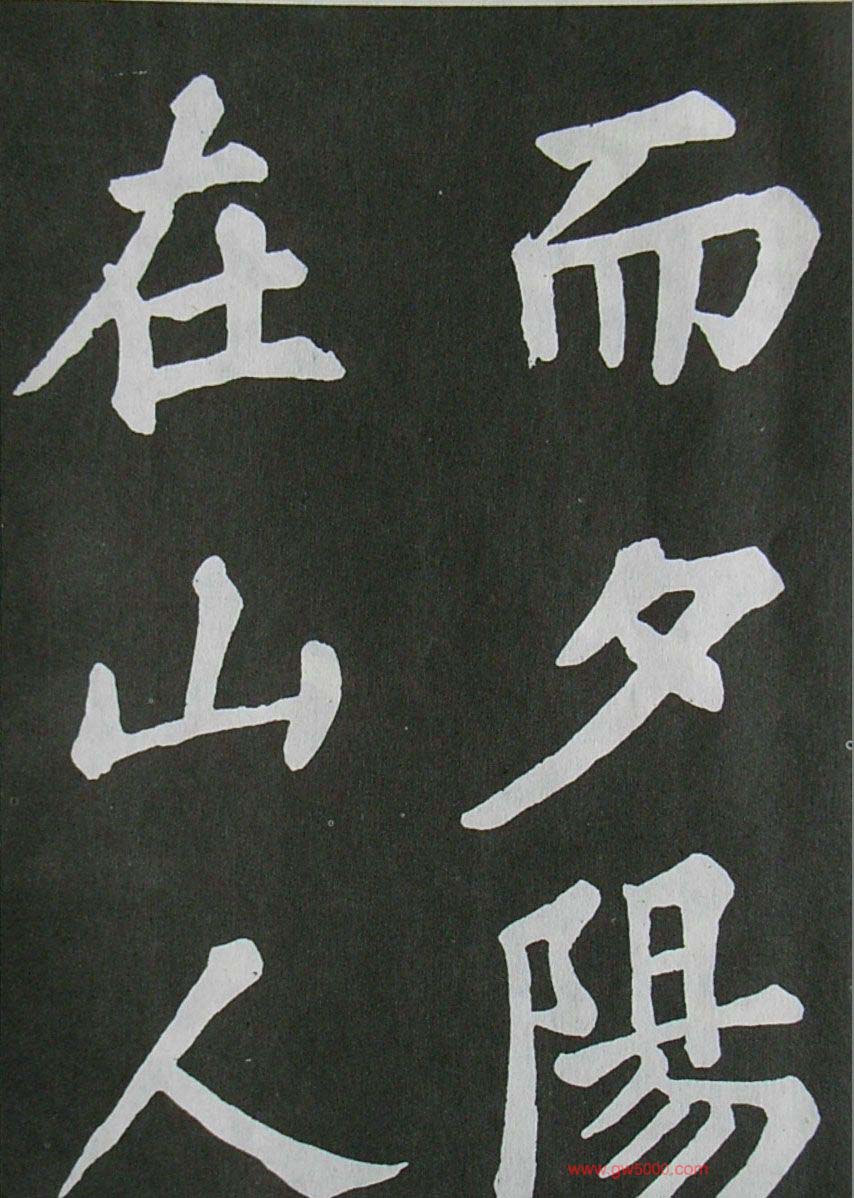 而夕陽
在山人
www.gw5000.com